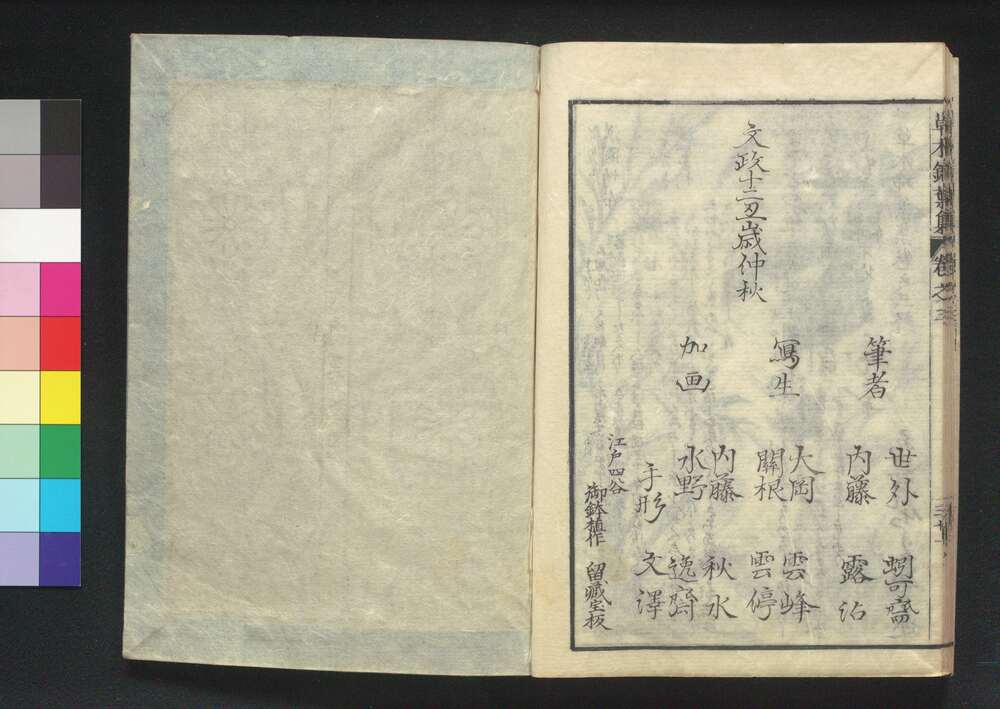 草木錦葉集 卷之三
文政十二丑歳仲秋
筆者
世外 蚓可齋
内藤 露沾
寫生
大岡 雲峰
關根 雲停
加画
内藤 秋水
水野 逸齋
手形 文澤
江戸四谷
御鉢植作 留藏生板